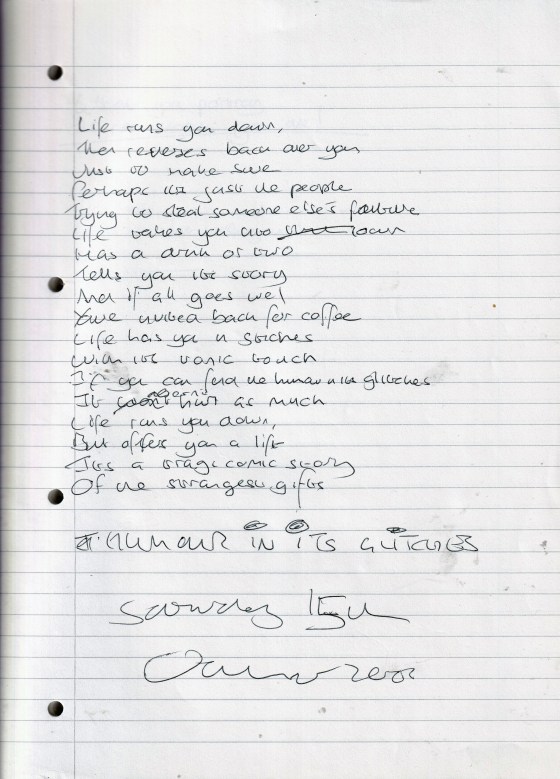 Life runs you down,
Then reverses back over you
Just to make sure
Perhaps its just the people
Trying to steal someone else's fortune
Life takes you into town
Has a drink or two
Tells you its story
And if all goes well
You're invited back for coffee
Life has you in stitches
With its tonic touch
If you can find the humour in its glitches
It doesn't hurt as much
Life runs you down,
But offers you a lift
Its a tragicomic story
Of the strangest gifts
HUMOUR IN ITS GLITCHES
15th